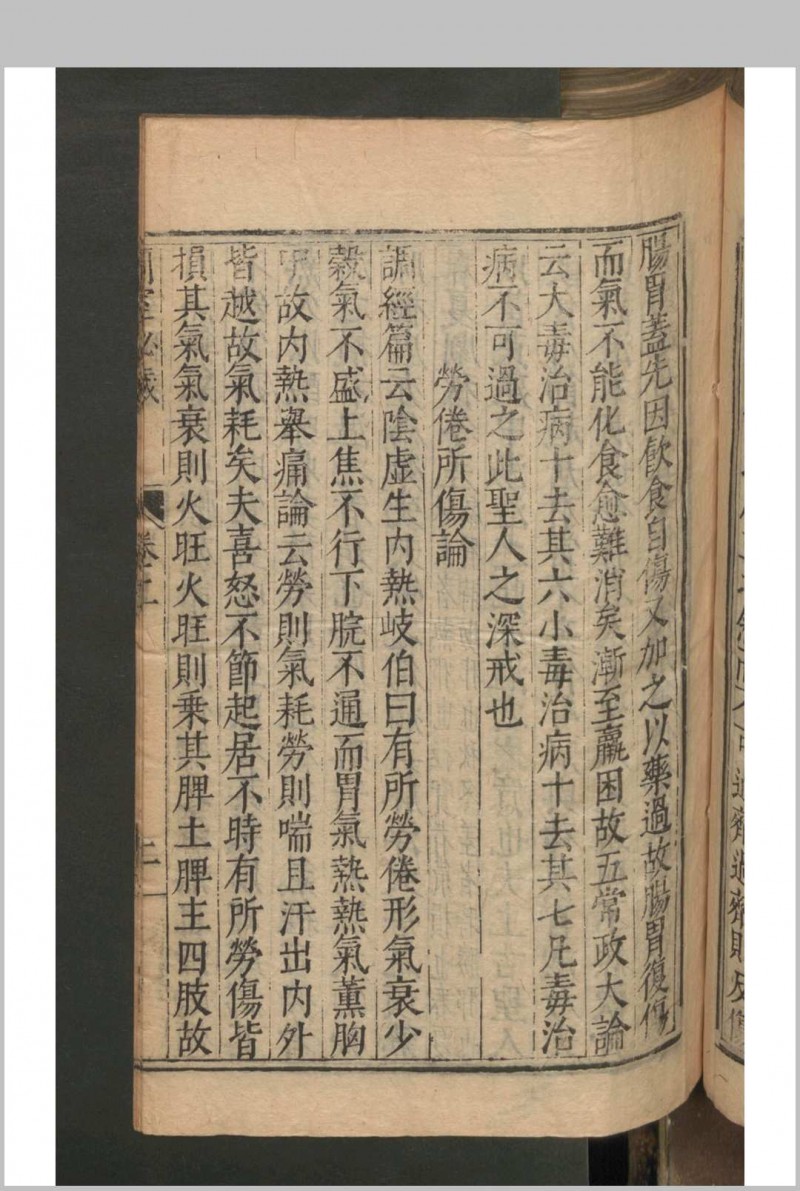 腸胃蓋先因飲食自傷又加之以藥過故腸胃復傷
而氣不能化食愈難消矣漸至羸困故五常政大論
云大毒治病十去其六小毒治病十去其七凡毒治
病不可過之此聖人之深戒也
勞倦所傷論
調經篇云陰虛生內熱岐伯曰有所勞倦形氣衰少
穀氣不盛上焦不行下脘不通而胃氣熱熱氣薰胸
中故內熱舉痛論云勞則氣耗勞則喘且汗出內外
皆越故氣耗矣夫喜怒不節起居不時有所勞傷皆
損其氣氣衰則火旺火旺則乗其脾土脾主四肢故
蘭室秘藏 卷上 二
過齊過齊則反傷